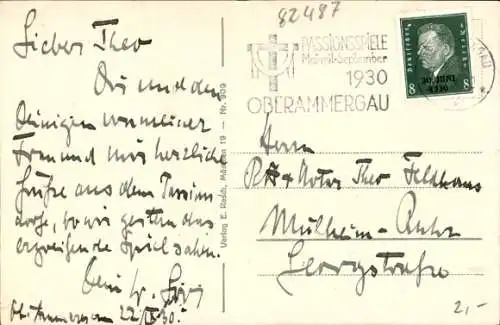 82487
Lieber Theo
Dir und den
Deinigen von meiner
Frau und mir herzliche
Grüsse aus dem Passions
dorfe, wo wir gestern das
ergreifende Spiel sahen.
Dein
22/IX 30.
Verlag E. Rieb, München 19 — Nr. 909
PASSIONSSPIELE
Mai mit September
1930
OBERAMMERGAU
Deutsches Reich
30. JUNI
1930
8 8
Herrn
R.A. & Notar Theo Feldhaus
Mülheim-Ruhr
Georgstrafse
2,-